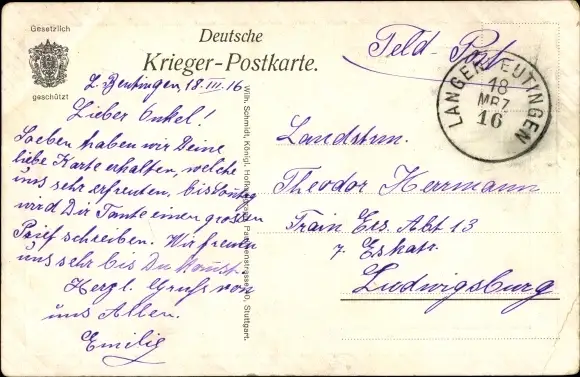 Gesetzlich
geschützt
Deutsche
Krieger-Postkarte.
Feld-Post
LANGENBEUTINGEN
18
MRZ
16
L. Beutingen, 18. III. 16
Lieber Onkel!
Soeben haben wir Deine
liebe Karte erhalten, welche
uns sehr erfreuten, bis Sonntag
wird Dir Tante einen grossen
Brief schreiben. Wir freuen
uns sehr bis Du kommst.
Herzl. Gruss von
uns Allen.
Emilie
Wilh. Schmidt, Königl. Stuttgart.
Landstrm.
Theodor Herrmann
Train Ers. Abt 13
7. Eskatr.
Ludwigsburg